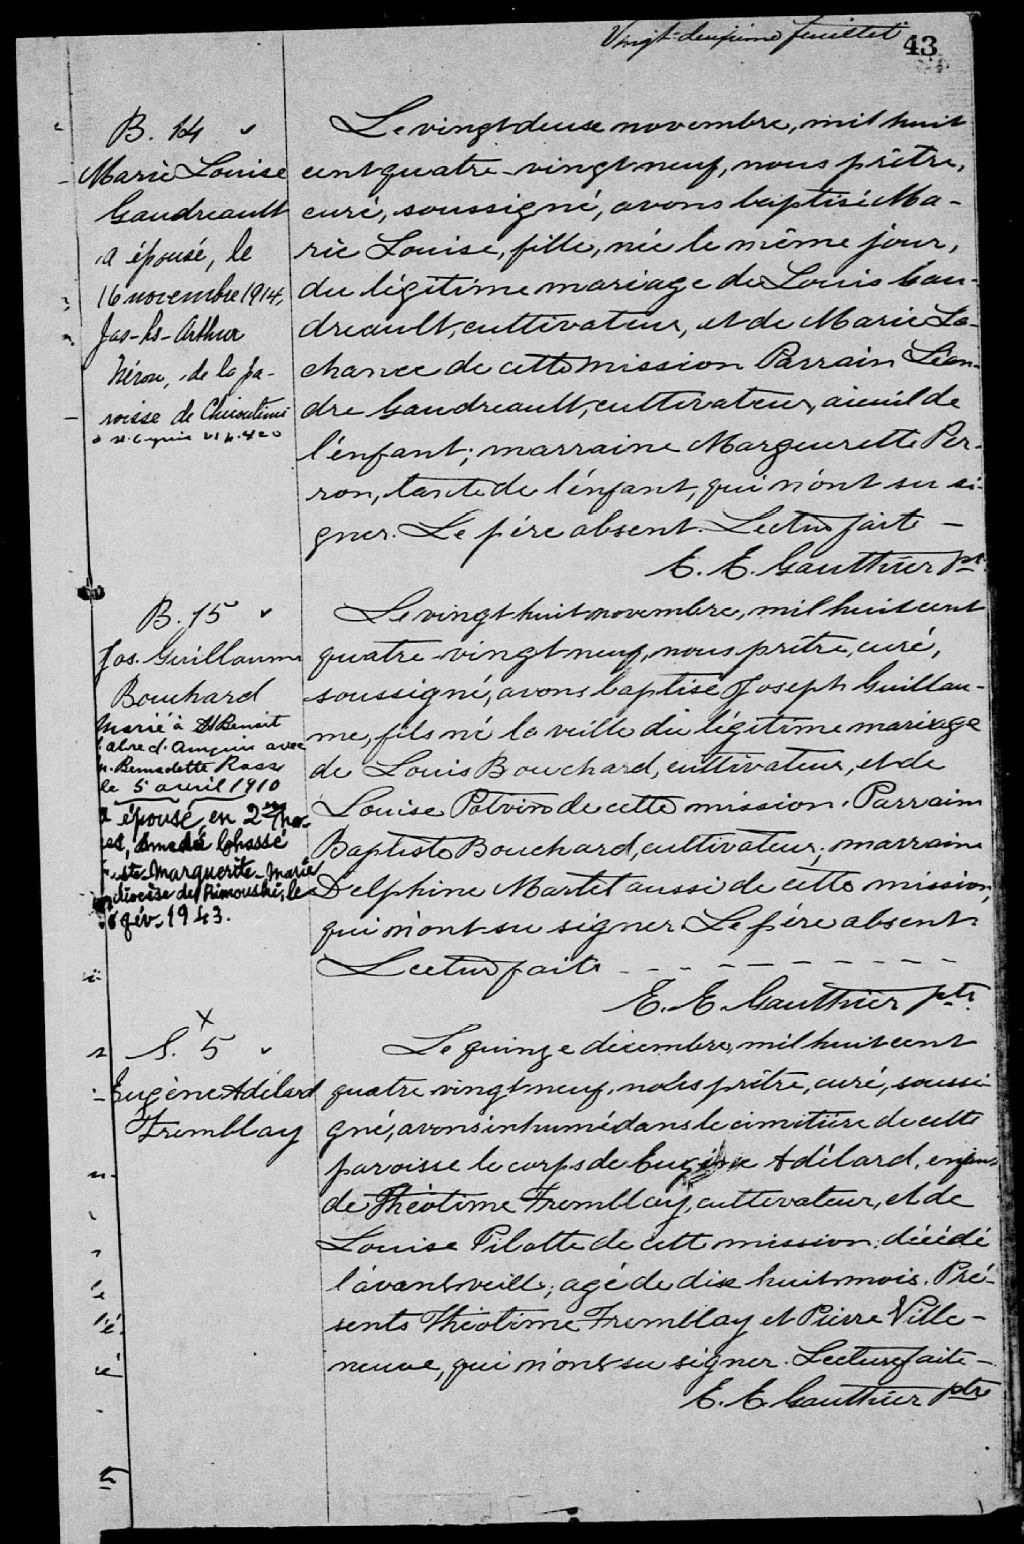 Vingt-deuxième feuillet
43
B. 14
Marie Louise
Gaudreault
a épousé, le
16 novembre 1914,
Jos-Ls-Arthur
Néron, de la pa-
roisse de Chicoutimi
Le vingt deux novembre, mil huit
cent quatre-vingt neuf, nous prêtre,
curé, soussigné, avons baptisé Ma-
rie Louise, fille, née le même jour,
du légitime mariage de Louis Gau-
dreault, cultivateur, et de Marie La-
chance de cette mission Parrain Léan-
dre Gaudreault, cultivateur, aïeul de
l'enfant; marraine Marguerette Per-
ron, tante de l'enfant, qui n'ont su si-
gner. Le père absent. Lecture faite —
E. E. Gauthier ptr
B. 15
Jos. Guillaume
Bouchard
Marié à St Benoit
Labre d'Amqui avec
M. Bernadette Ross
le 5 avril 1910
a épousé en 2es no-
ces, Chassé
Ste-Marguerite-Marie
diocèse de Rimouski, le
fév. 1943.
Le vingt huit novembre, mil huit cent
quatre-vingt neuf, nous prêtre, curé,
soussigné, avons baptisé Joseph Guillau-
me, fils né la veille du légitime mariage
de Louis Bouchard, cultivateur, et de
Louise Potvin de cette mission. Parrain
Baptiste Bouchard, cultivateur; marraine
Delphine Martel aussi de cette mission,
qui n'ont su signer. Le père absent.
Lecture faite - - - - - - - - -
E. E. Gauthier ptr.
X
S. 5
Eugène Adélard
Tremblay
Le quinze décembre, mil huit cent
quatre vingt neuf, nous prêtre, curé, soussi-
gné, avons inhumé dans le cimetière de cette
paroisse le corps de Eugène Adélard, enfant
de Théotime Tremblay, cultivateur, et de
Louise Pilotte de cett mission, décédé
l'avant veille, agé de dix huit mois. Pré-
sents Théotime Tremblay et Pierre Ville-
neuve, qui n'ont su signer. Lecture faite —
E. E. Gauthier ptre